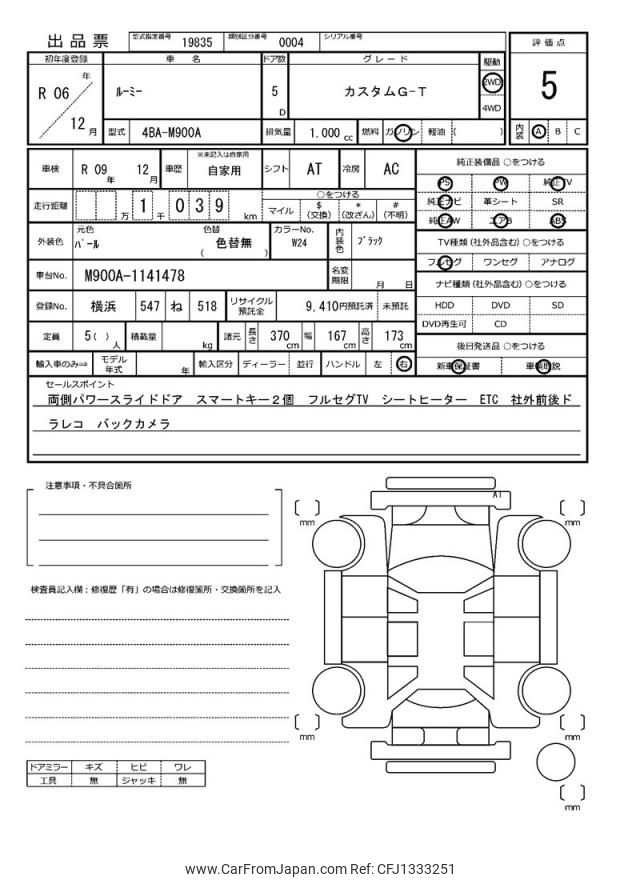 出品票 型式指定番号 19835 類別区分番号 0004 シリアル番号
評価点
5
内装 A B C
初年度登録 車名 ドア数 グレード 駆動
R 06 年 12 月 ルーミー 5 D カスタムG-T 2WD 4WD
型式 4BA-M900A 排気量 1.000 cc 燃料 ガソリン 軽油 ( )
車検 R 09 年 12 月 車歴 ※未記入は自家用 自家用 シフト AT 冷房 AC
走行距離 万 1 千 0 3 9 km ○をつける
マイル $ (交換) * (改ざん) # (不明)
外装色 元色 パール 色替 ( 色替無 ) カラーNo. W24 内装色 ブラック
車台No. M900A-1141478 名変期限 月 日
登録No. 横浜 547 ね 518 リサイクル預託金 9,410円預託済 未預託
定員 5( )人 積載量 kg 諸元 長さ 370 cm 幅 167 cm 高さ 173 cm
輸入車のみ⇒ モデル年式 年 輸入区分 ディーラー 並行 ハンドル 左 右
純正装備品 ○をつける
PS PW 純正TV
純正ナビ 革シート SR
純正AW エアB ABS
TV種類 (社外品含む) ○をつける
フルセグ ワンセグ アナログ
ナビ種類 (社外品含む) ○をつける
HDD DVD SD
DVD再生可 CD
後日発送品 ○をつける
新車保証書 車輌取説
セールスポイント
両側パワースライドドア スマートキー2個 フルセグTV シートヒーター ETC 社外前後ド
ラレコ バックカメラ
注意事項・不具合箇所
検査員記入欄：修復歴「有」の場合は修復箇所・交換箇所を記入
AT
[ ] mm
[ ] mm
[ ] mm
[ ] mm
[ ] mm
ドアミラー キズ ヒビ ワレ
工具 無 ジャッキ 無
www.CarFromJapan.com Ref: CFJ1333251